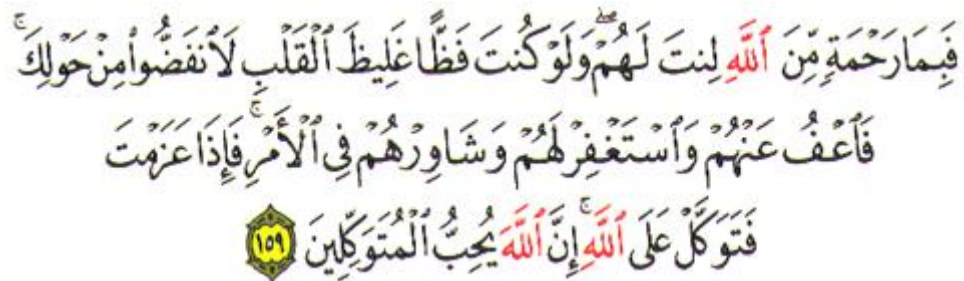 فَبِمَا رَحْمَةٍ مِّنَ ٱللَّهِ لِنتَ لَهُمْ ۖ وَلَوْ كُنتَ فَظًّا غَلِيظَ ٱلْقَلْبِ لَٱنفَضُّوا۟ مِنْ حَوْلِكَ ۖ
فَٱعْفُ عَنْهُمْ وَٱسْتَغْفِرْ لَهُمْ وَشَاوِرْهُمْ فِى ٱلْأَمْرِ ۖ فَإِذَا عَزَمْتَ
فَتَوَكَّلْ عَلَى ٱللَّهِ ۚ إِنَّ ٱللَّهَ يُحِبُّ ٱلْمُتَوَكِّلِينَ ١٥٩